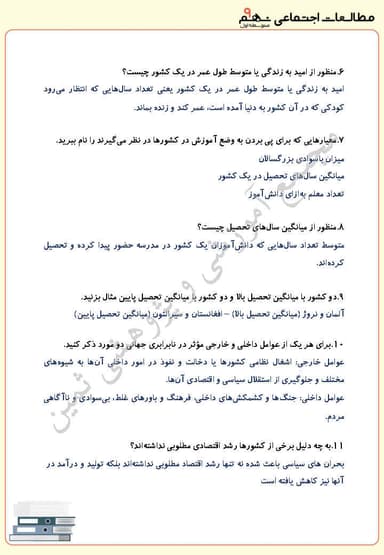 مطالعات اجتماعی نهم
۶.منظور از امید به زندگی یا متوسط طول عمر در یک کشور چیست؟
امید به زندگی یا متوسط طول عمر در یک کشور یعنی تعداد سال‌هایی که انتظار می‌رود
کودکی که در آن کشور به دنیا آمده است، عمر کند و زنده بماند.
۷.معیارهایی که برای پی بردن به وضع آموزش در کشورها در نظر می‌گیرند را نام ببرید.
میزان باسوادی بزرگسالان
میانگین سال‌های تحصیل در یک کشور
تعداد معلم به‌ازای دانش‌آموز
۸.منظور از میانگین سال‌های تحصیل چیست؟
متوسط تعداد سال‌هایی که دانش‌آموزان یک کشور در مدرسه حضور پیدا کرده و تحصیل
کرده‌اند.
۹.دو کشور با میانگین تحصیل بالا و دو کشور با میانگین تحصیل پایین مثال بزنید.
آلمان و نروژ (میانگین تحصیل بالا) – افغانستان و سیرالئون (میانگین تحصیل پایین)
۱۰.برای هر یک از عوامل داخلی و خارجی مؤثر در نابرابری جهانی دو مورد ذکر کنید.
عوامل خارجی: اشغال نظامی کشورها یا دخالت و نفوذ در امور داخلی آن‌ها به شیوه‌های
مختلف و جلوگیری از استقلال سیاسی و اقتصادی آن‌ها.
عوامل داخلی: جنگ‌ها و کشمکش‌های داخلی، فرهنگ و باورهای غلط، بی‌سوادی و ناآگاهی
مردم.
۱۱.به چه دلیل برخی از کشورها رشد اقتصادی مطلوبی نداشته‌اند؟
بحران های سیاسی باعث شده نه تنها رشد اقتصاد مطلوبی نداشته‌اند بلکه تولید و درآمد در
آنها نیز کاهش یافته است
مجتمع آموزشی و پژوهشی